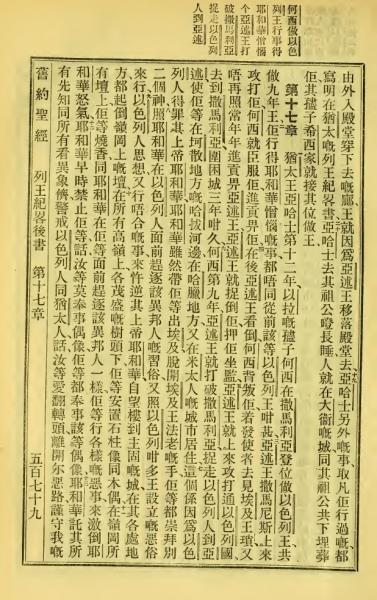 何西做以色
列王行事得
耶和華憎惱
亞述王打
破撒馬利亞
捉走以色列
人到亞述
由外入殿堂穿下去嘅廊王就因爲亞述王移落殿堂去亞哈士另外嘅事取凡佢行過嘅都
寫明在猶太嘅列王紀畧書亞哈士去其祖公嶝長睡人就在大衛嘅城同其祖公共下埋葬
佢其孻子希西家就接其位做王
第十七章　猶太王亞哈士第十二年以拉嘅孻子何西在撒馬利亞登位做以色列王共
做九年王佢行得耶和華憎惱嘅事都唔同從前該等以色列王咁甚亞述王撒馬尼斯上來
攻打佢何西就臣服佢進貢畀佢在後亞述王看倒何西背叛佢着發使者去見埃及王瑣又
唔再照常年年進貢畀亞述王亞述王就捉倒佢押佢坐監亞述王就上來攻打通以色列國
去到撒馬利亞圍困城三年咁久何西第九年亞述王就打破撒馬利亞捉走以色列人到亞
述使佢等在坷散地方嘅哈拔河邊在哈臘地方又在米太人嘅城市居住這個係因爲以色
列人得罪其上帝耶和華耶和華雖然帶佢等出埃及脫開埃及王法老嘅手佢等都崇拜別
二個神照耶和華在以色列人面前趕逐該異邦人嘅習俗又照以色列咁多王設立嘅惡俗
來行以色列人思想又行唔合嘅事來忤逆其上帝耶和華自望樓到主固嘅城在其各處地
方都起倒嶺岡上嘅壇在所有高嶺上各茂盛嘅樹頭下佢等安置石柱像同木偶在嶺岡所
有壇上佢等燒香同耶和華在佢等面前趕逐該異邦人一樣佢等行各樣嘅惡事來激倒耶
和華怒氣耶和華早時禁止佢等話汝等莫奉事偶像佢等都奉事該等偶像耶和華託其所
有先知同所有看異象儕警戒以色列人同猶太人話汝等愛翻轉頭離開尔惡路謹守我嘅
舊約聖經　列王紀畧後書　第十七章　五百七十九